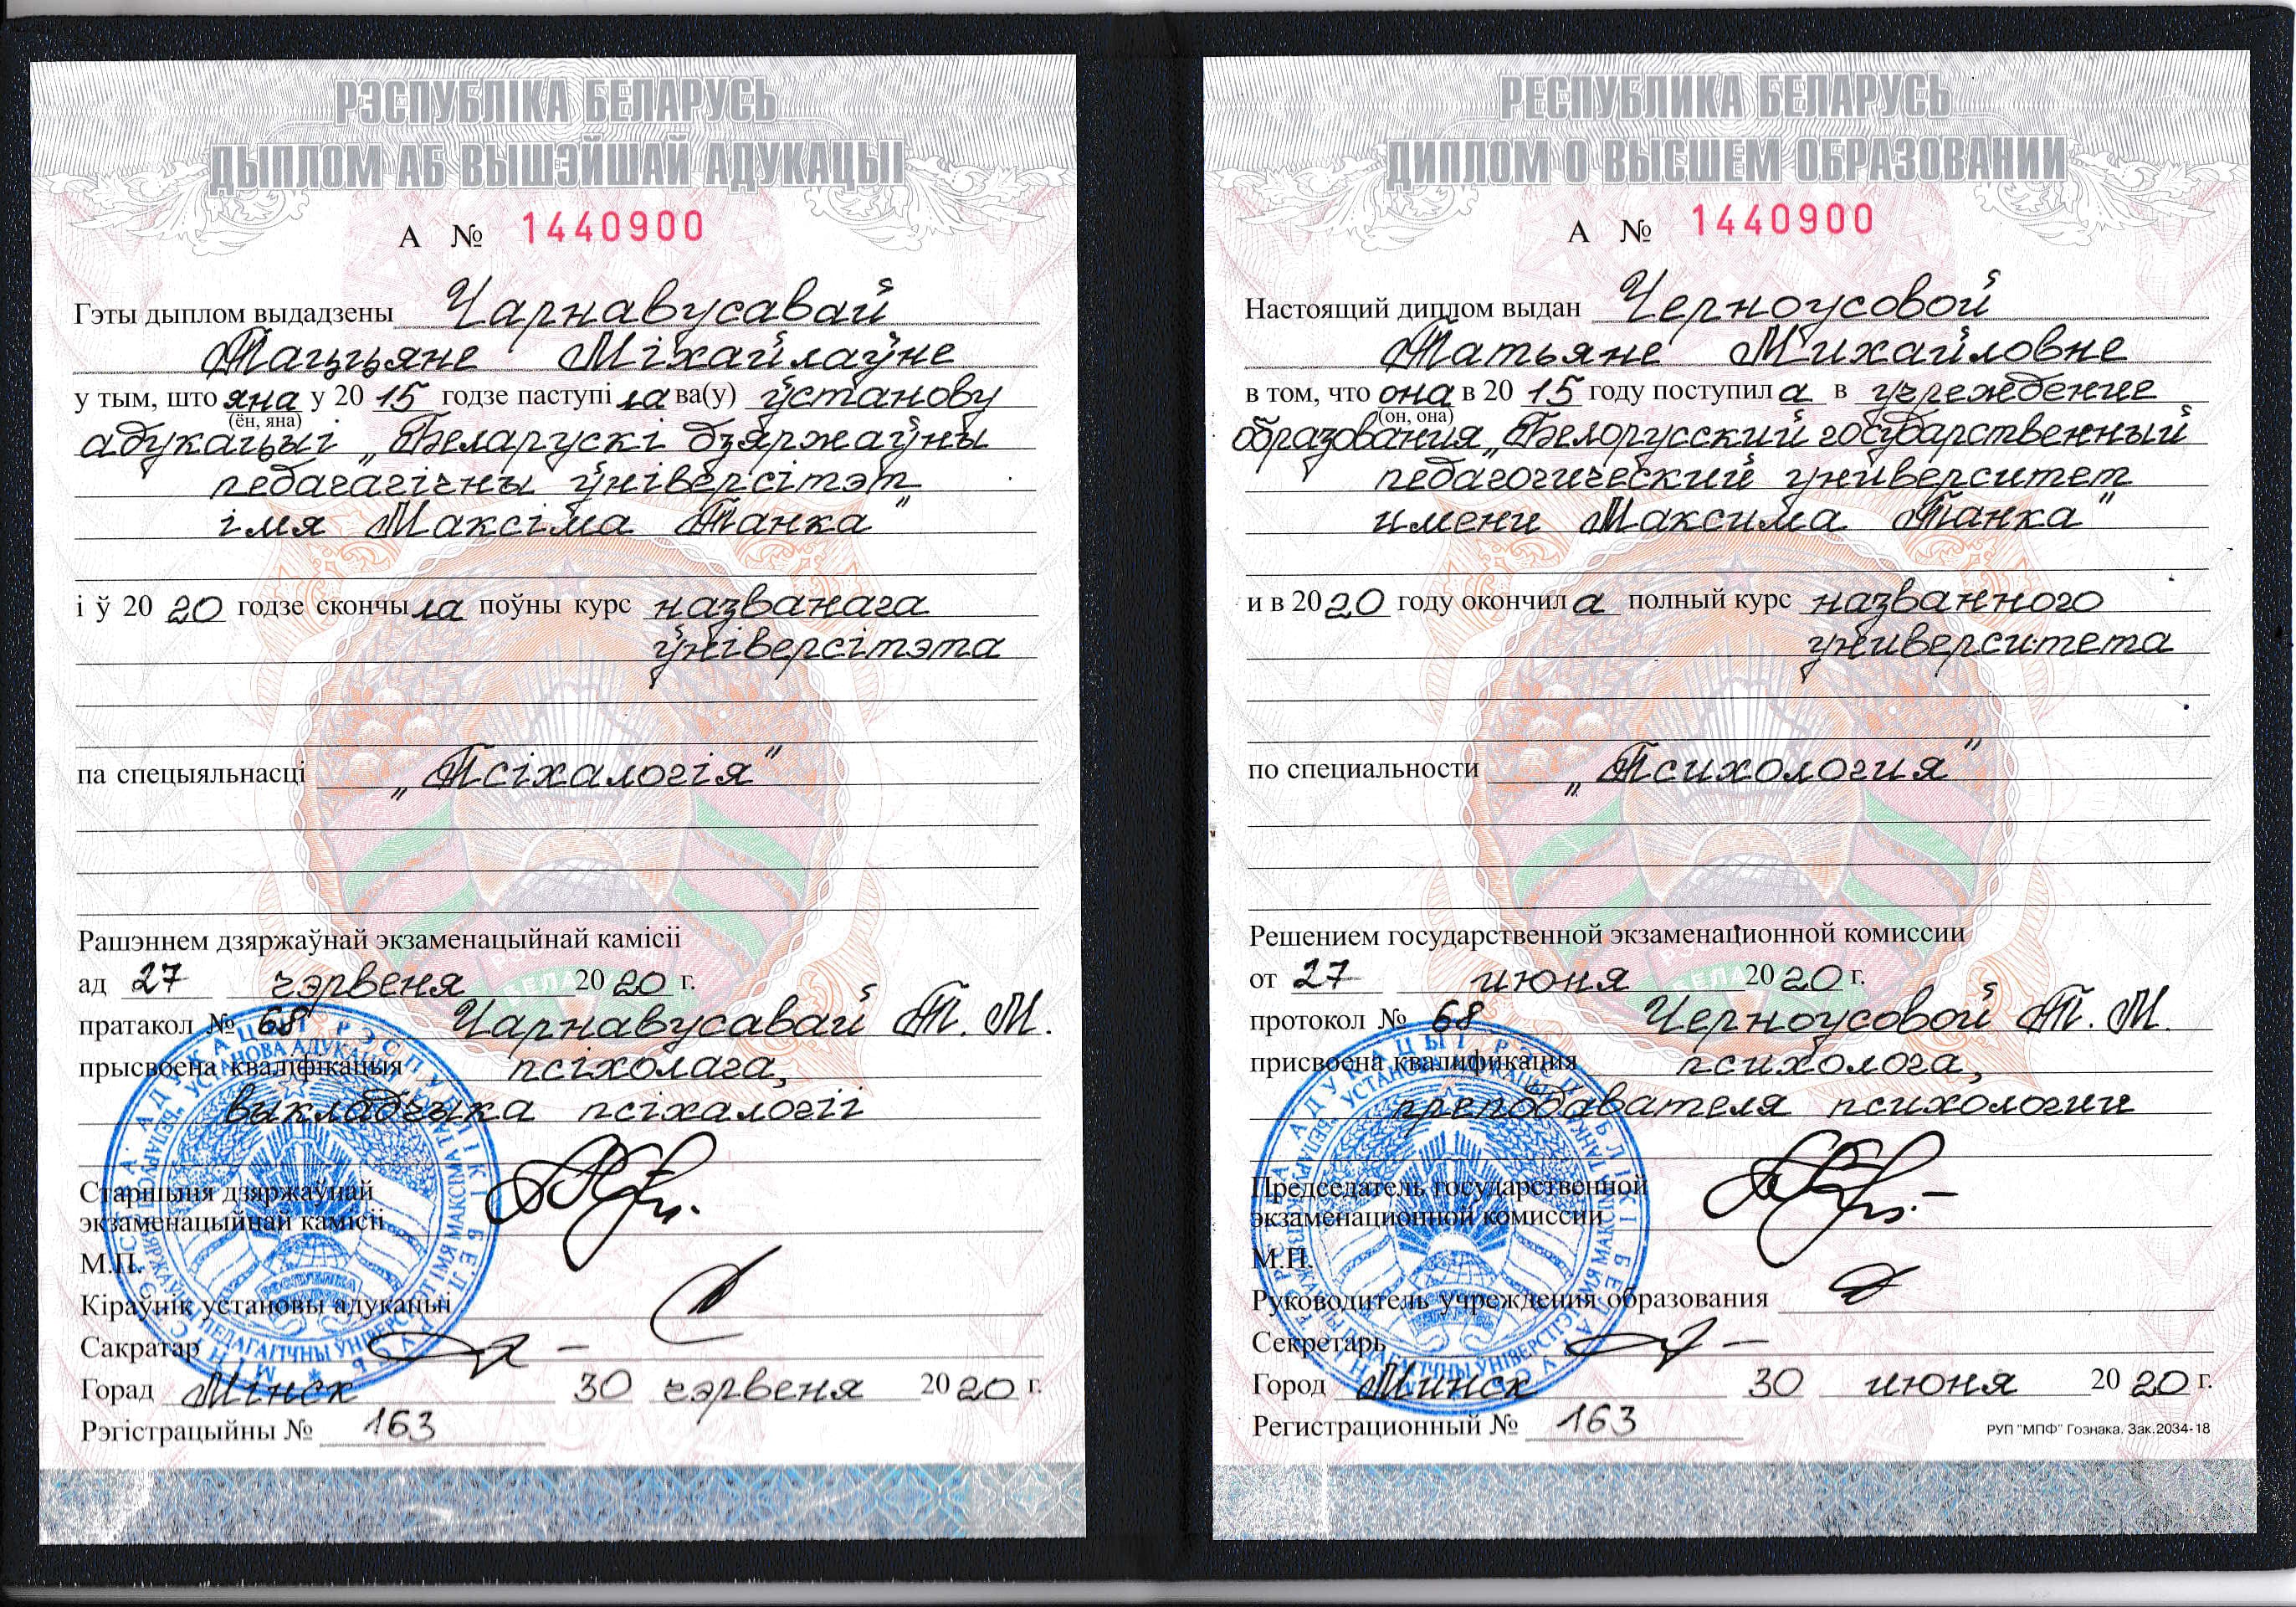 РЭСПУБЛІКА БЕЛАРУСЬ
ДЫПЛОМ АБ ВЫШЭЙШАЙ АДУКАЦЫІ
А № 1440900
Гэты дыплом выдадзены Чарнавусавай
Таццяне Міхайлаўне
у тым, што яна у 20 15 годзе паступі ла ва(у) ўстанову
(ён, яна)
адукацыі „Беларускі дзяржаўны
педагагічны ўніверсітэт
імя Максіма Танка"
і ў 20 20 годзе скончы ла поўны курс названага
ўніверсітэта
па спецыяльнасці „Псіхалогія"
Рашэннем дзяржаўнай экзаменацыйнай камісіі
ад 27 чэрвеня 20 20 г.
пратакол № 68 Чарнавусавай Т. М.
прысвоена кваліфікацыя псіхолага,
выкладчыка псіхалогіі
Старшыня дзяржаўнай
экзаменацыйнай камісіі
М.П.
Кіраўнік установы адукацыі
Сакратар
Горад Мінск 30 чэрвеня 20 20 г.
Рэгістрацыйны № 163
РЕСПУБЛИКА БЕЛАРУСЬ
ДИПЛОМ О ВЫСШЕМ ОБРАЗОВАНИИ
А № 1440900
Настоящий диплом выдан Черноусовой
Татьяне Михайловне
в том, что она в 20 15 году поступил а в учреждение
(он, она)
образования „Белорусский государственный
педагогический университет
имени Максима Танка"
и в 20 20 году окончил а полный курс названного
университета
по специальности „Психология"
Решением государственной экзаменационной комиссии
от 27 июня 20 20 г.
протокол № 68 Черноусовой Т. М.
присвоена квалификация психолога,
преподавателя психологии
Председатель государственной
экзаменационной комиссии
М.П.
Руководитель учреждения образования
Секретарь
Город Минск 30 июня 20 20 г.
Регистрационный № 163
РУП "МПФ" Гознака. Зак.2034-18